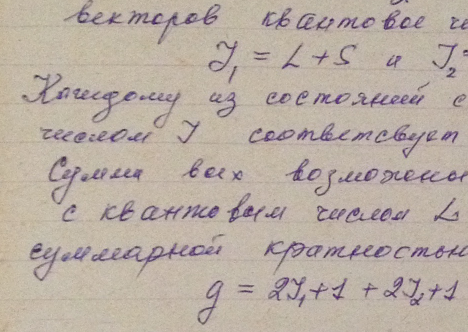 векторов квантовое чи
J₁ = L + S и J₂ =
Каждому из состояний с
числом J соответсвует
Сумма всех возможны
с квантовым числом L
суммарной кратностью
g = 2J₁+1 + 2J₂+1